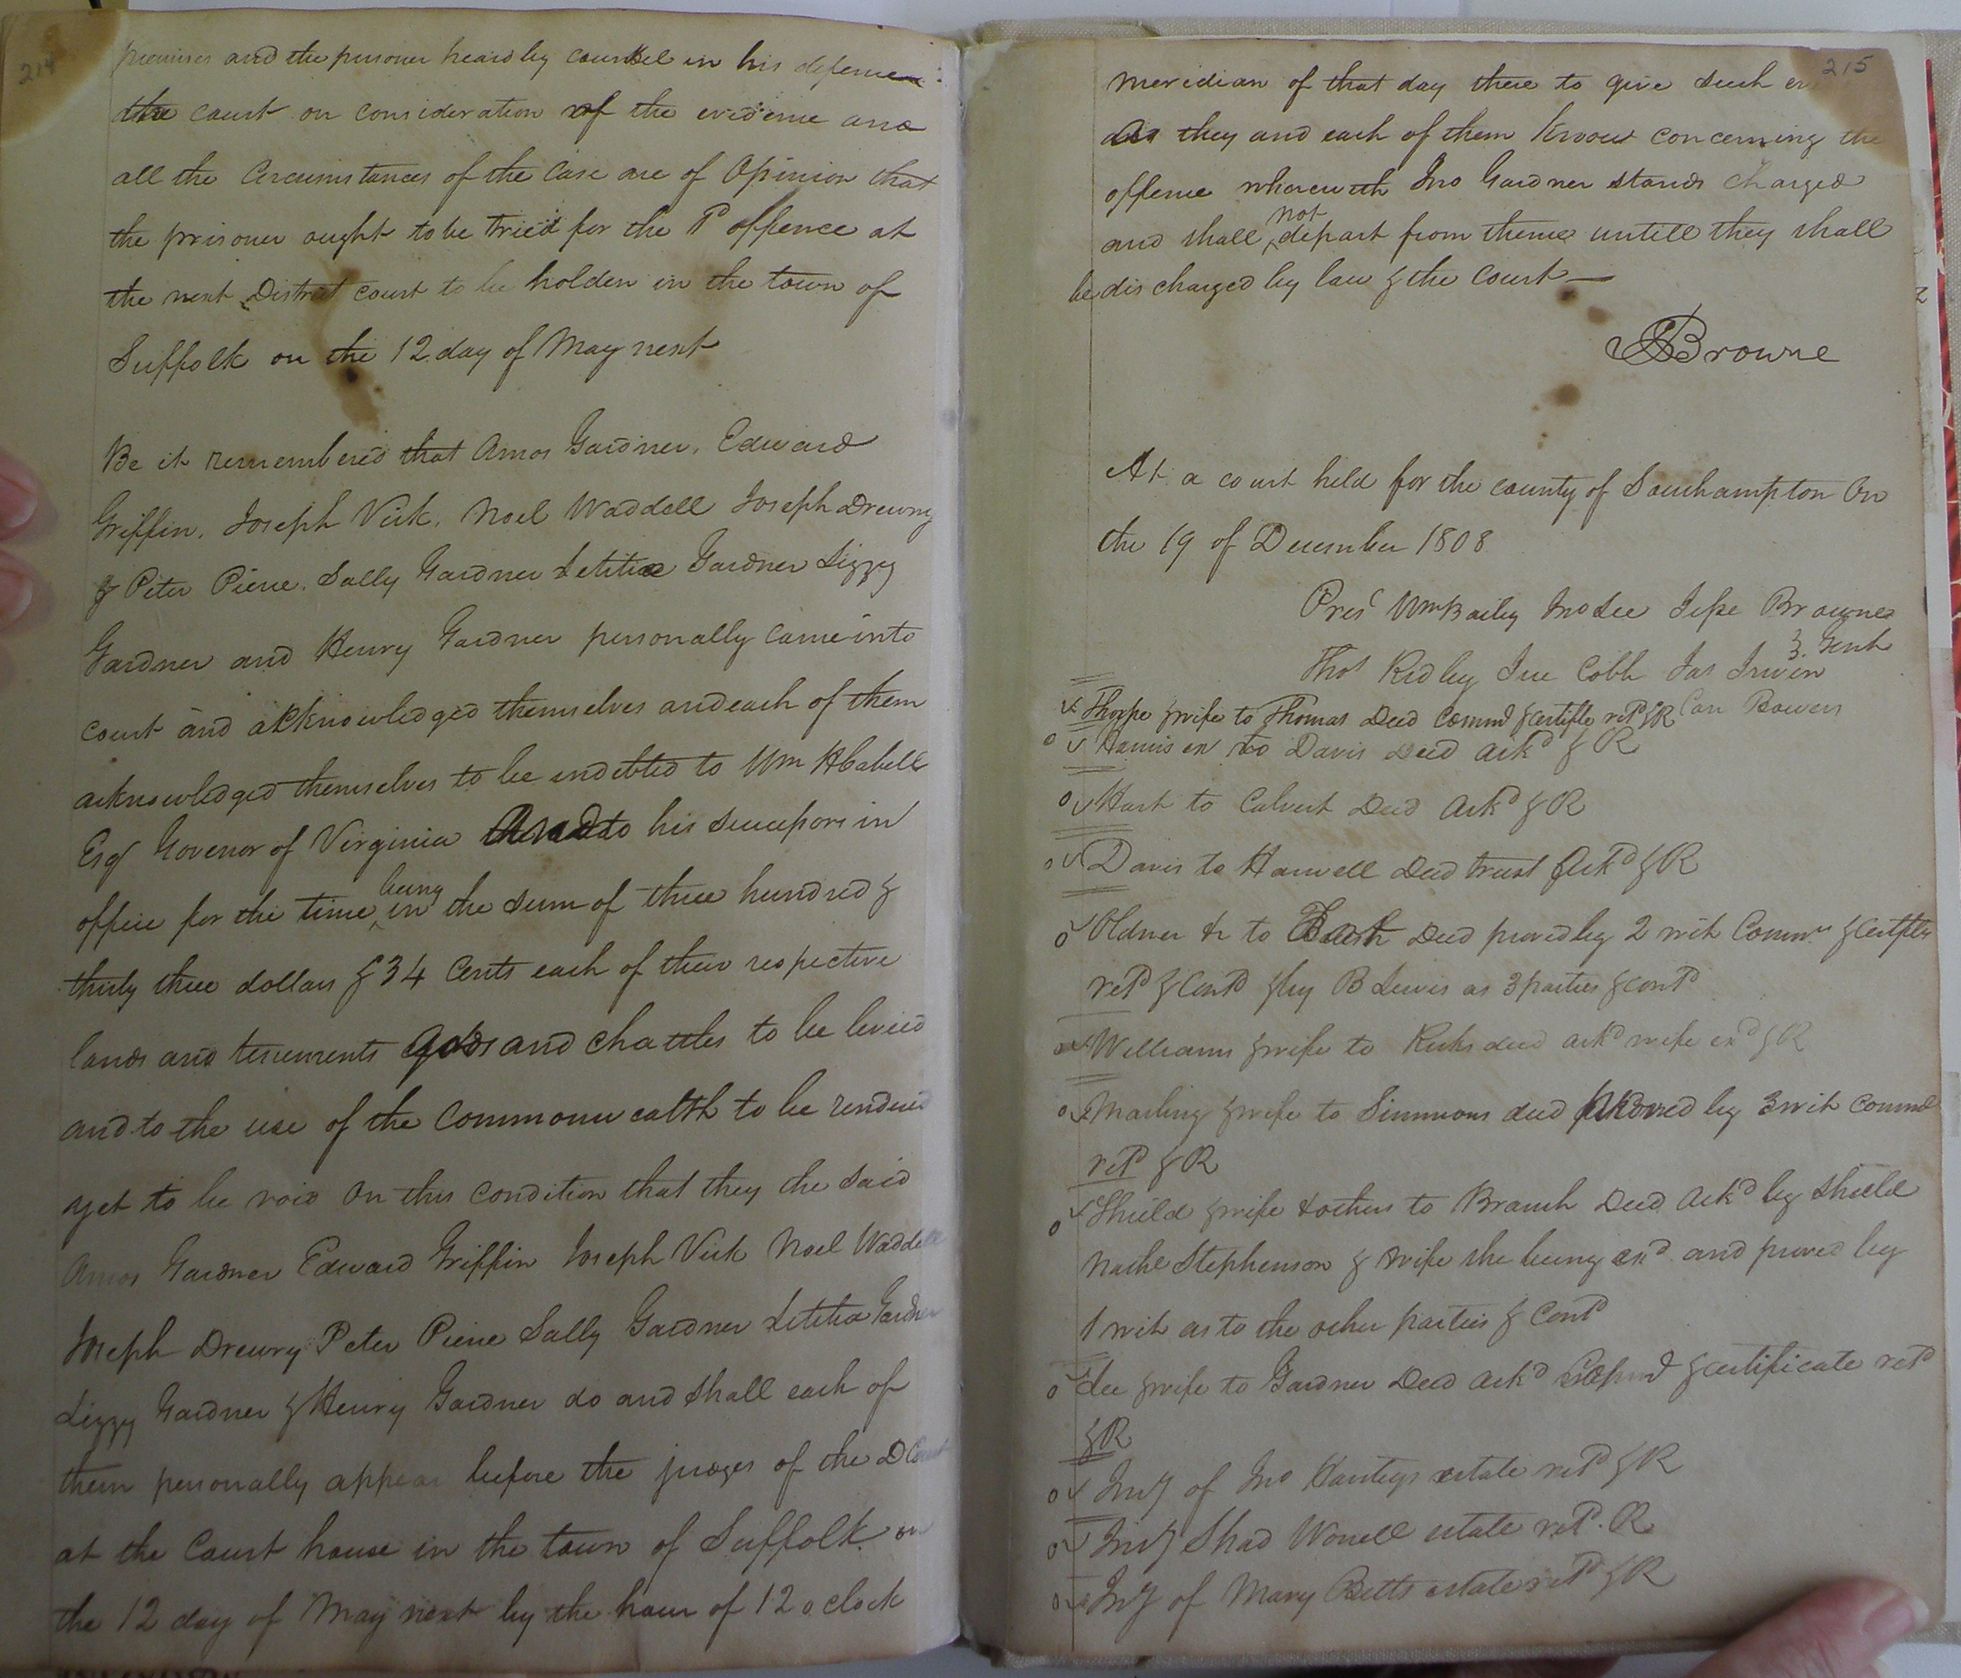 214
premises and the prisoner heard by counsel in his defence
the court on consideration of the evidence and
all the Circumstances of the Case are of Opinion that
the prisoner ought to be tried for the sd offence at
the next District court to be holden in the town of
Suffolk on the 12 day of May next
Be it remembered that Amos Gardner, Edward
Griffin, Joseph Vick, Noel Waddell Joseph Drewry
& Peter Pierce, Sally Gardner Letitia Gardner Lizzy
Gardner and Henry Gardner personally came into
court and acknowledged themselves and each of them
acknowledged themselves to be indebted to Wm H Cabell
Esqr Govenor of Virginia And to his successors in
office for the time being in the sum of three hundred &
thirty three dollars & 34 Cents each of their respective
lands and tenements gods and chattles to be levied
and to the use of the Commonwealth to be rendered
yet to be void On this condition that they the said
Amos Gardner Edward Griffin Joseph Vick Noel Waddell
Joseph Drewry Peter Pierce Sally Gardner Letitia Gardner
Lizzy Gardner & Henry Gardner do and shall each of
them personally appear before the judges of the D Court
at the Court house in the town of Suffolk on
the 12 day of May next by the hour of 12 o clock
215
meridian of that day there to give such
as they and each of them know concerning the
offence wherewith Jno Gardner stands charged
and shall not depart from thence untill they shall
be discharged by law & the Court
Browne
At a court held for the county of Southampton On
the 19 of December 1808
Prest Wm Bailey Jno Lee Jesse Browne
Thos Ridley Jere Cobb Jas Irwin Gent
Thorpe & wife to Thomas Deed Commd & certifte retd & R Carr Bowers
Harris ex to Davis Deed Ackd & R
Hart to Calvert Deed Ackd & R
Davis to Harwell Deed trust Ackd & R
Oldner &c to Deed proved by 2 wit Commn & Certifte
retd & Contd & by B Lewis as 3 parties & contd
Williams & wife to Ricks deed ackd wife exd & R
& wife to Simmons deed proved by 3 wit Commd
retd & R
Shield & wife & others to Branch Deed Ackd by Shield
Nathl Stephenson & wife she being exd and proved by
1 wit as to the other parties & Contd
Lee & wife to Gardner Deed Ackd Commd & certificate retd
& R
Invy of Jno estate retd & R
Invy Shad Worrell estate retd. R
Invy of Mary Betts estate retd & R